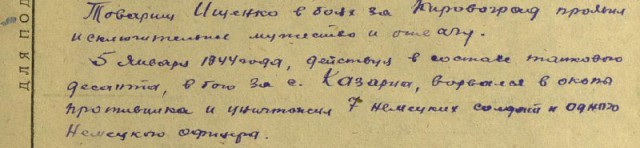 Товарищ Ищенко в боях за Кировоград проявил
исключительное мужество и отвагу.
5 Января 1944 года, действуя в составе танкового
десанта, в бою за с. Казарна, ворвался в окопы
противника и уничтожил 7 немецких солдат и одного
Немецкого офицера.
ДЛЯ ПОД